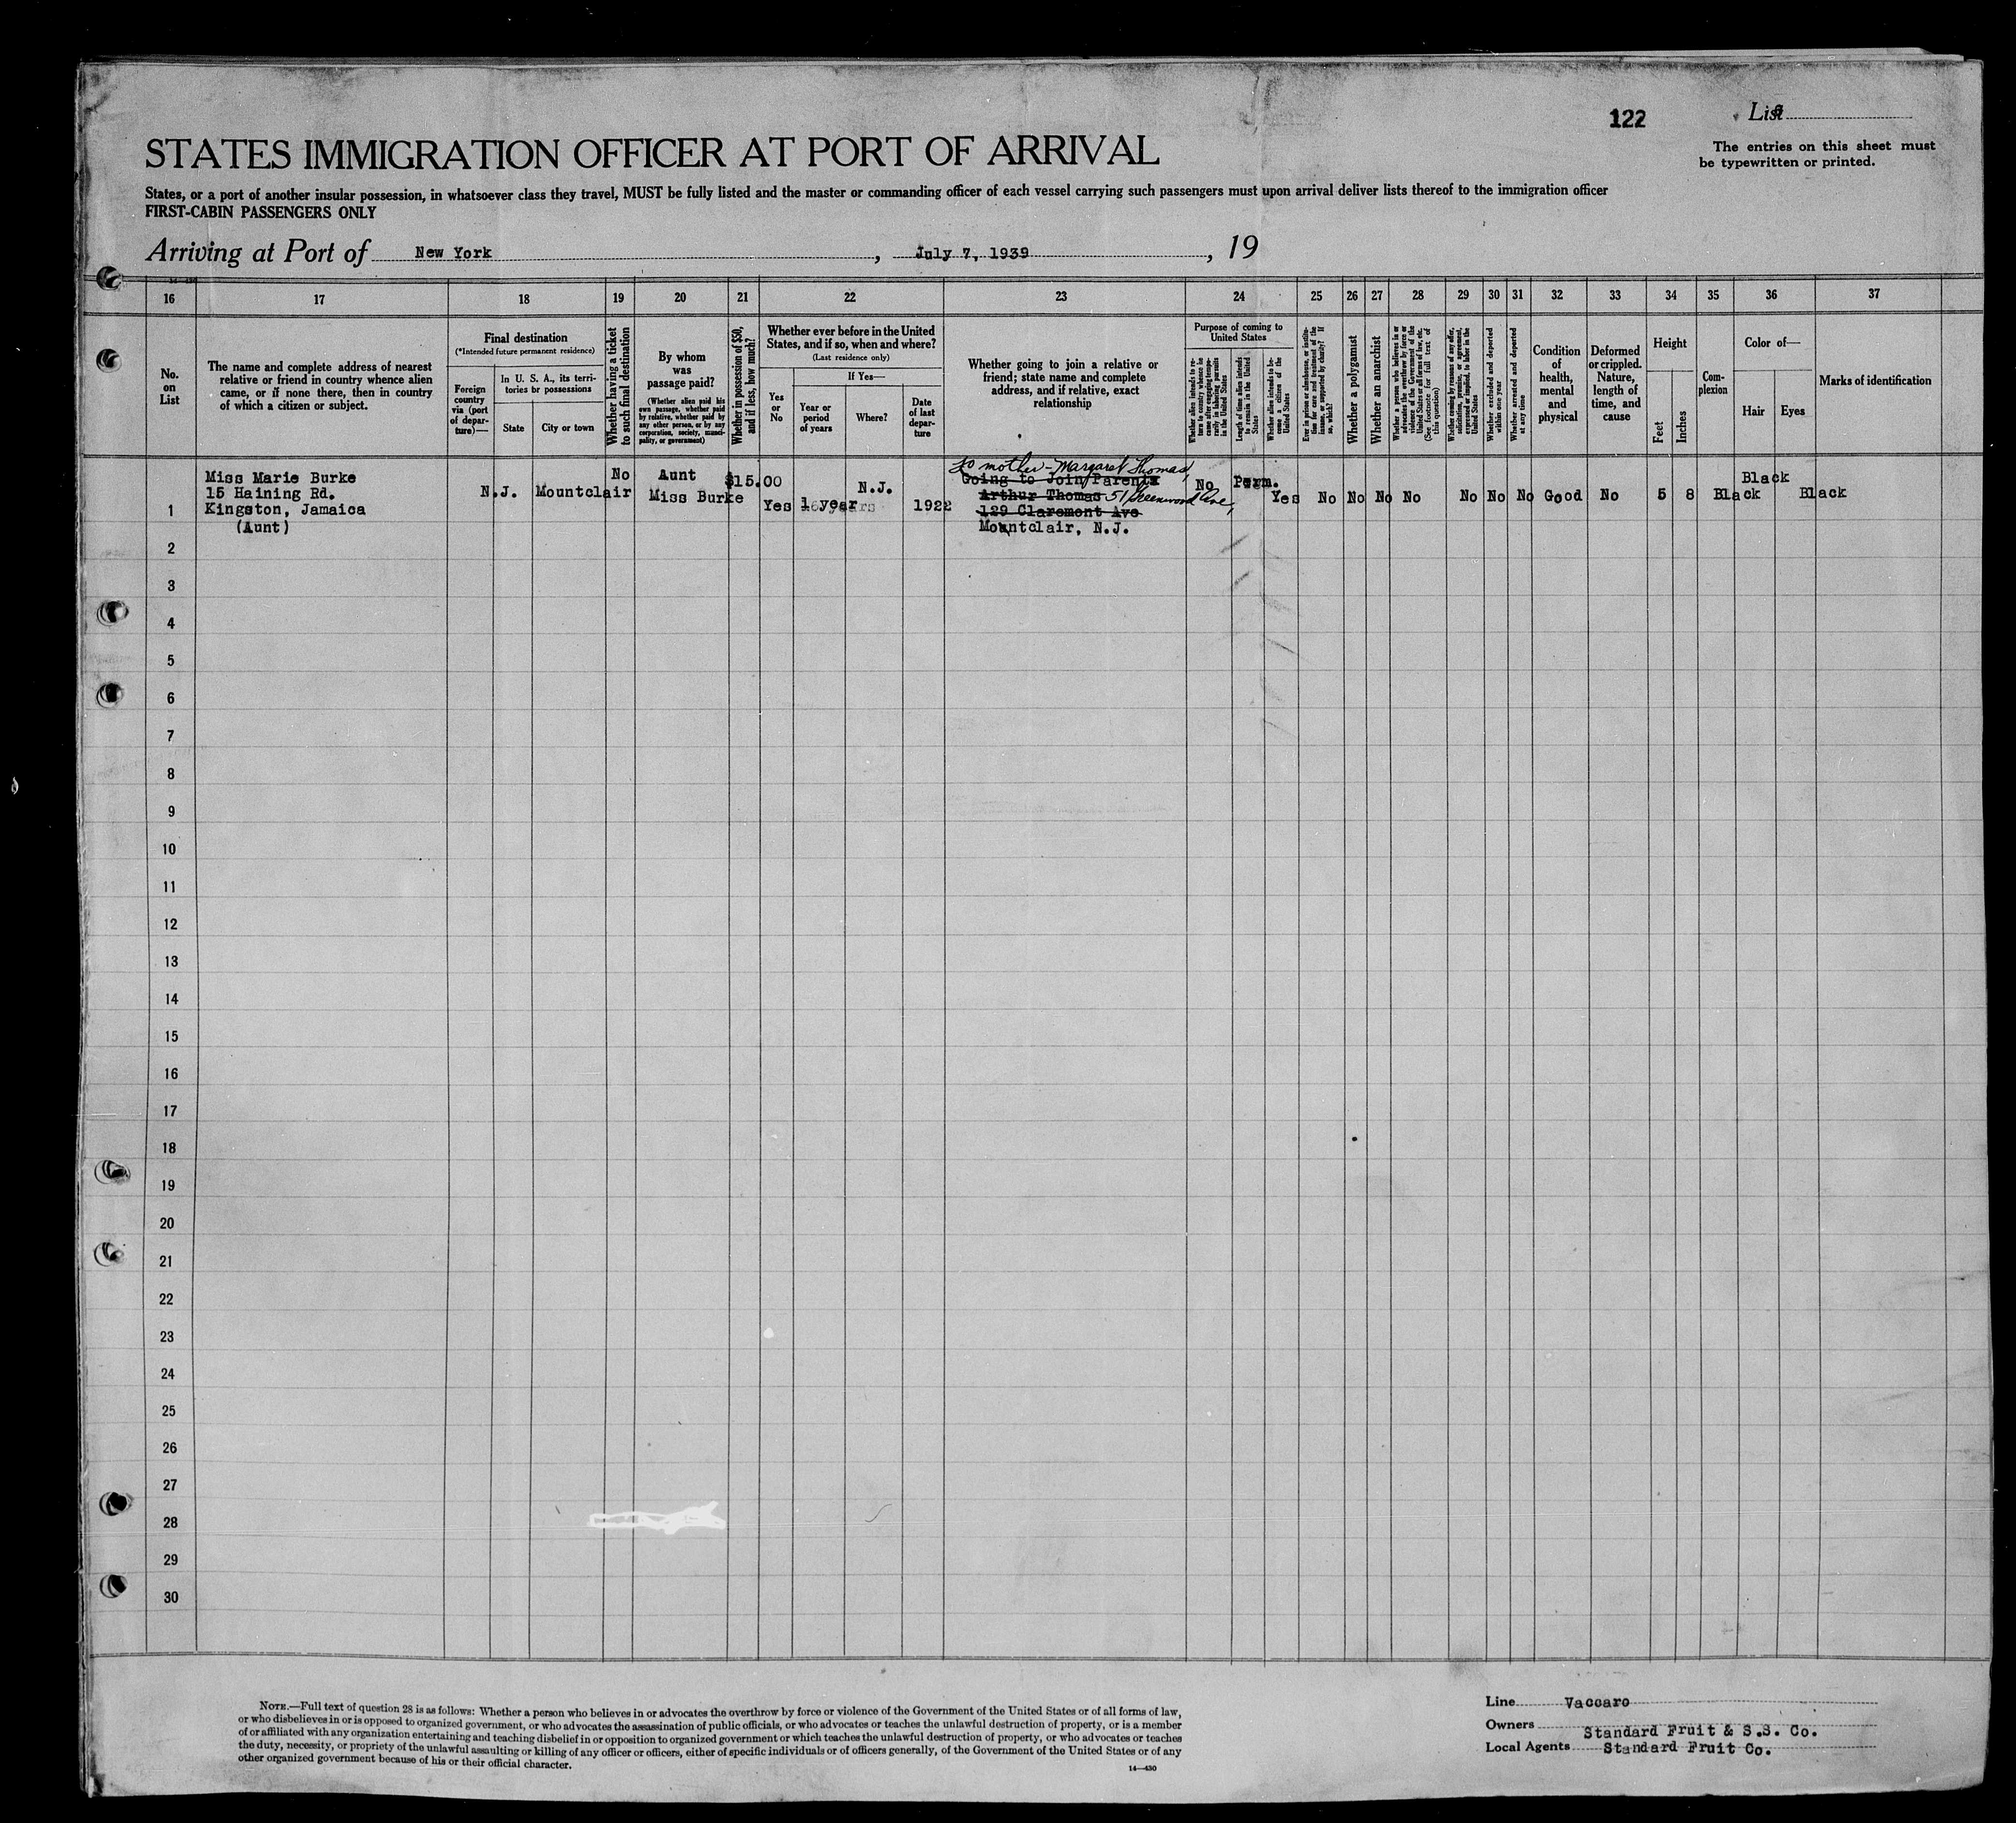 122
List
The entries on this sheet must
be typewritten or printed.
STATES IMMIGRATION OFFICER AT PORT OF ARRIVAL
States, or a port of another insular possession, in whatsoever class they travel, MUST be fully listed and the master or commanding officer of each vessel carrying such passengers must upon arrival deliver lists thereof to the immigration officer
FIRST-CABIN PASSENGERS ONLY
Arriving at Port of New York, July 7, 1939, 19
16 17 18 19 20 21 22 23 24 25 26 27 28 29 30 31 32 33 34 35 36 37
No.
on
List
The name and complete address of nearest
relative or friend in country whence alien
came, or if none there, then in country
of which a citizen or subject.
Final destination
(*Intended future permanent residence)
Foreign
country
via (port
of depar-
ture)—
In U. S. A., its terri-
tories or possessions
State
City or town
Whether having a ticket
to such final destination
By whom
was
passage paid?
(Whether alien paid his
own passage, whether paid
by relative, whether paid by
any other person, or by any
corporation, society, munici-
pality, or government)
Whether in possession of $50,
and if less, how much?
Whether ever before in the United
States, and if so, when and where?
(Last residence only)
Yes
or
No
If Yes—
Year or
period
of years
Where?
Date
of last
depar-
ture
Whether going to join a relative or
friend; state name and complete
address, and if relative, exact
relationship
Purpose of coming to
United States
Whether alien intends to re-
turn to country whence he
came after engaging tempo-
rarily in laboring pursuits
in the United States
Length of time alien intends
to remain in the United
States
Whether alien intends to be-
come a citizen of the
United States
Ever in prison or almshouse, or institu-
tion for care and treatment of the
insane, or supported by charity? If
so, which?
Whether a polygamist
Whether an anarchist
Whether a person who believes in or
advocates the overthrow by force or
violence of the Government of the
United States or all forms of law, etc.
(See footnote for full text of
this question)
Whether coming by reasons of any offer,
solicitation, promise, or agreement,
expressed or implied, to labor in the
United States
Whether excluded and deported
within one year
Whether arrested and deported
at any time
Condition
of
health,
mental
and
physical
Deformed
or crippled.
Nature,
length of
time, and
cause
Height
Feet
Inches
Com-
plexion
Color of—
Hair
Eyes
Marks of identification
1
Miss Marie Burke
15 Haining Rd.
Kingston, Jamaica
(Aunt)
N.J.
Mountclair
No
Aunt
Miss Burke
$15.00
Yes
1 year
N.J.
1922
To mother - Margaret Thomas,
Going to Join Parents
Arthur Thomas 51 Greenwood Ave,
129 Claremont Ave
Montclair, N.J.
No
Perm.
Yes
No No No No No No No Good No 5 8 Black Black Black
2
3
4
5
6
7
8
9
10
11
12
13
14
15
16
17
18
19
20
21
22
23
24
25
26
27
28
29
30
NOTE.—Full text of question 28 is as follows: Whether a person who believes in or advocates the overthrow by force or violence of the Government of the United States or of all forms of law,
or who disbelieves in or is opposed to organized government, or who advocates the assassination of public officials, or who advocates or teaches the unlawful destruction of property, or is a member
of or affiliated with any organization entertaining and teaching disbelief in or opposition to organized government or which teaches the unlawful destruction of property, or who advocates or teaches
the duty, necessity, or propriety of the unlawful assaulting or killing of any officer or officers, either of specific individuals or of officers generally, of the Government of the United States or of any
other organized government because of his or their official character.
14—430
Line Vaccaro
Owners Standard Fruit & S.S. Co.
Local Agents Standard Fruit Co.